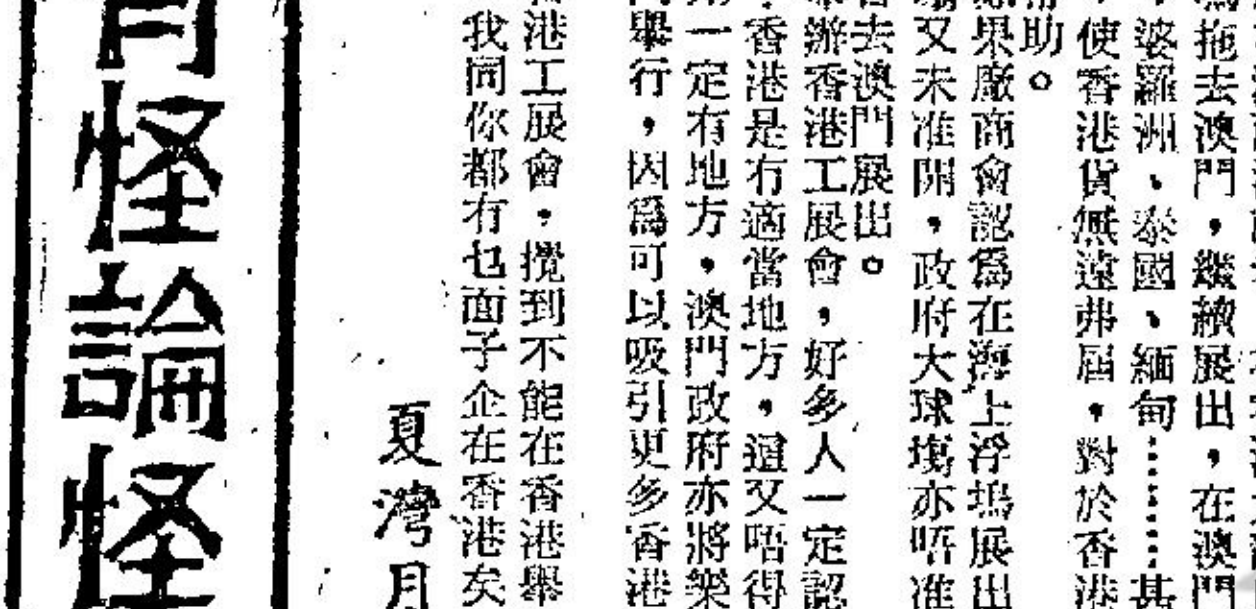 拖去澳門，繼續展出，在澳門
、婆羅洲、泰國、緬甸……甚
，使香港貨無遠弗屆，對於香港
助。
果廠商會認爲在海上浮塢展出
又未准開，政府大球塲亦唔准
去澳門展出。
辦香港工展會，好多人一定認
香港是冇適當地方，這又唔得
一定有地方，澳門政府亦將樂
舉行，因爲可以吸引更多香港
港工展會，攪到不能在香港舉
我同你都有乜面子企在香港矣
夏灣
怪論怪